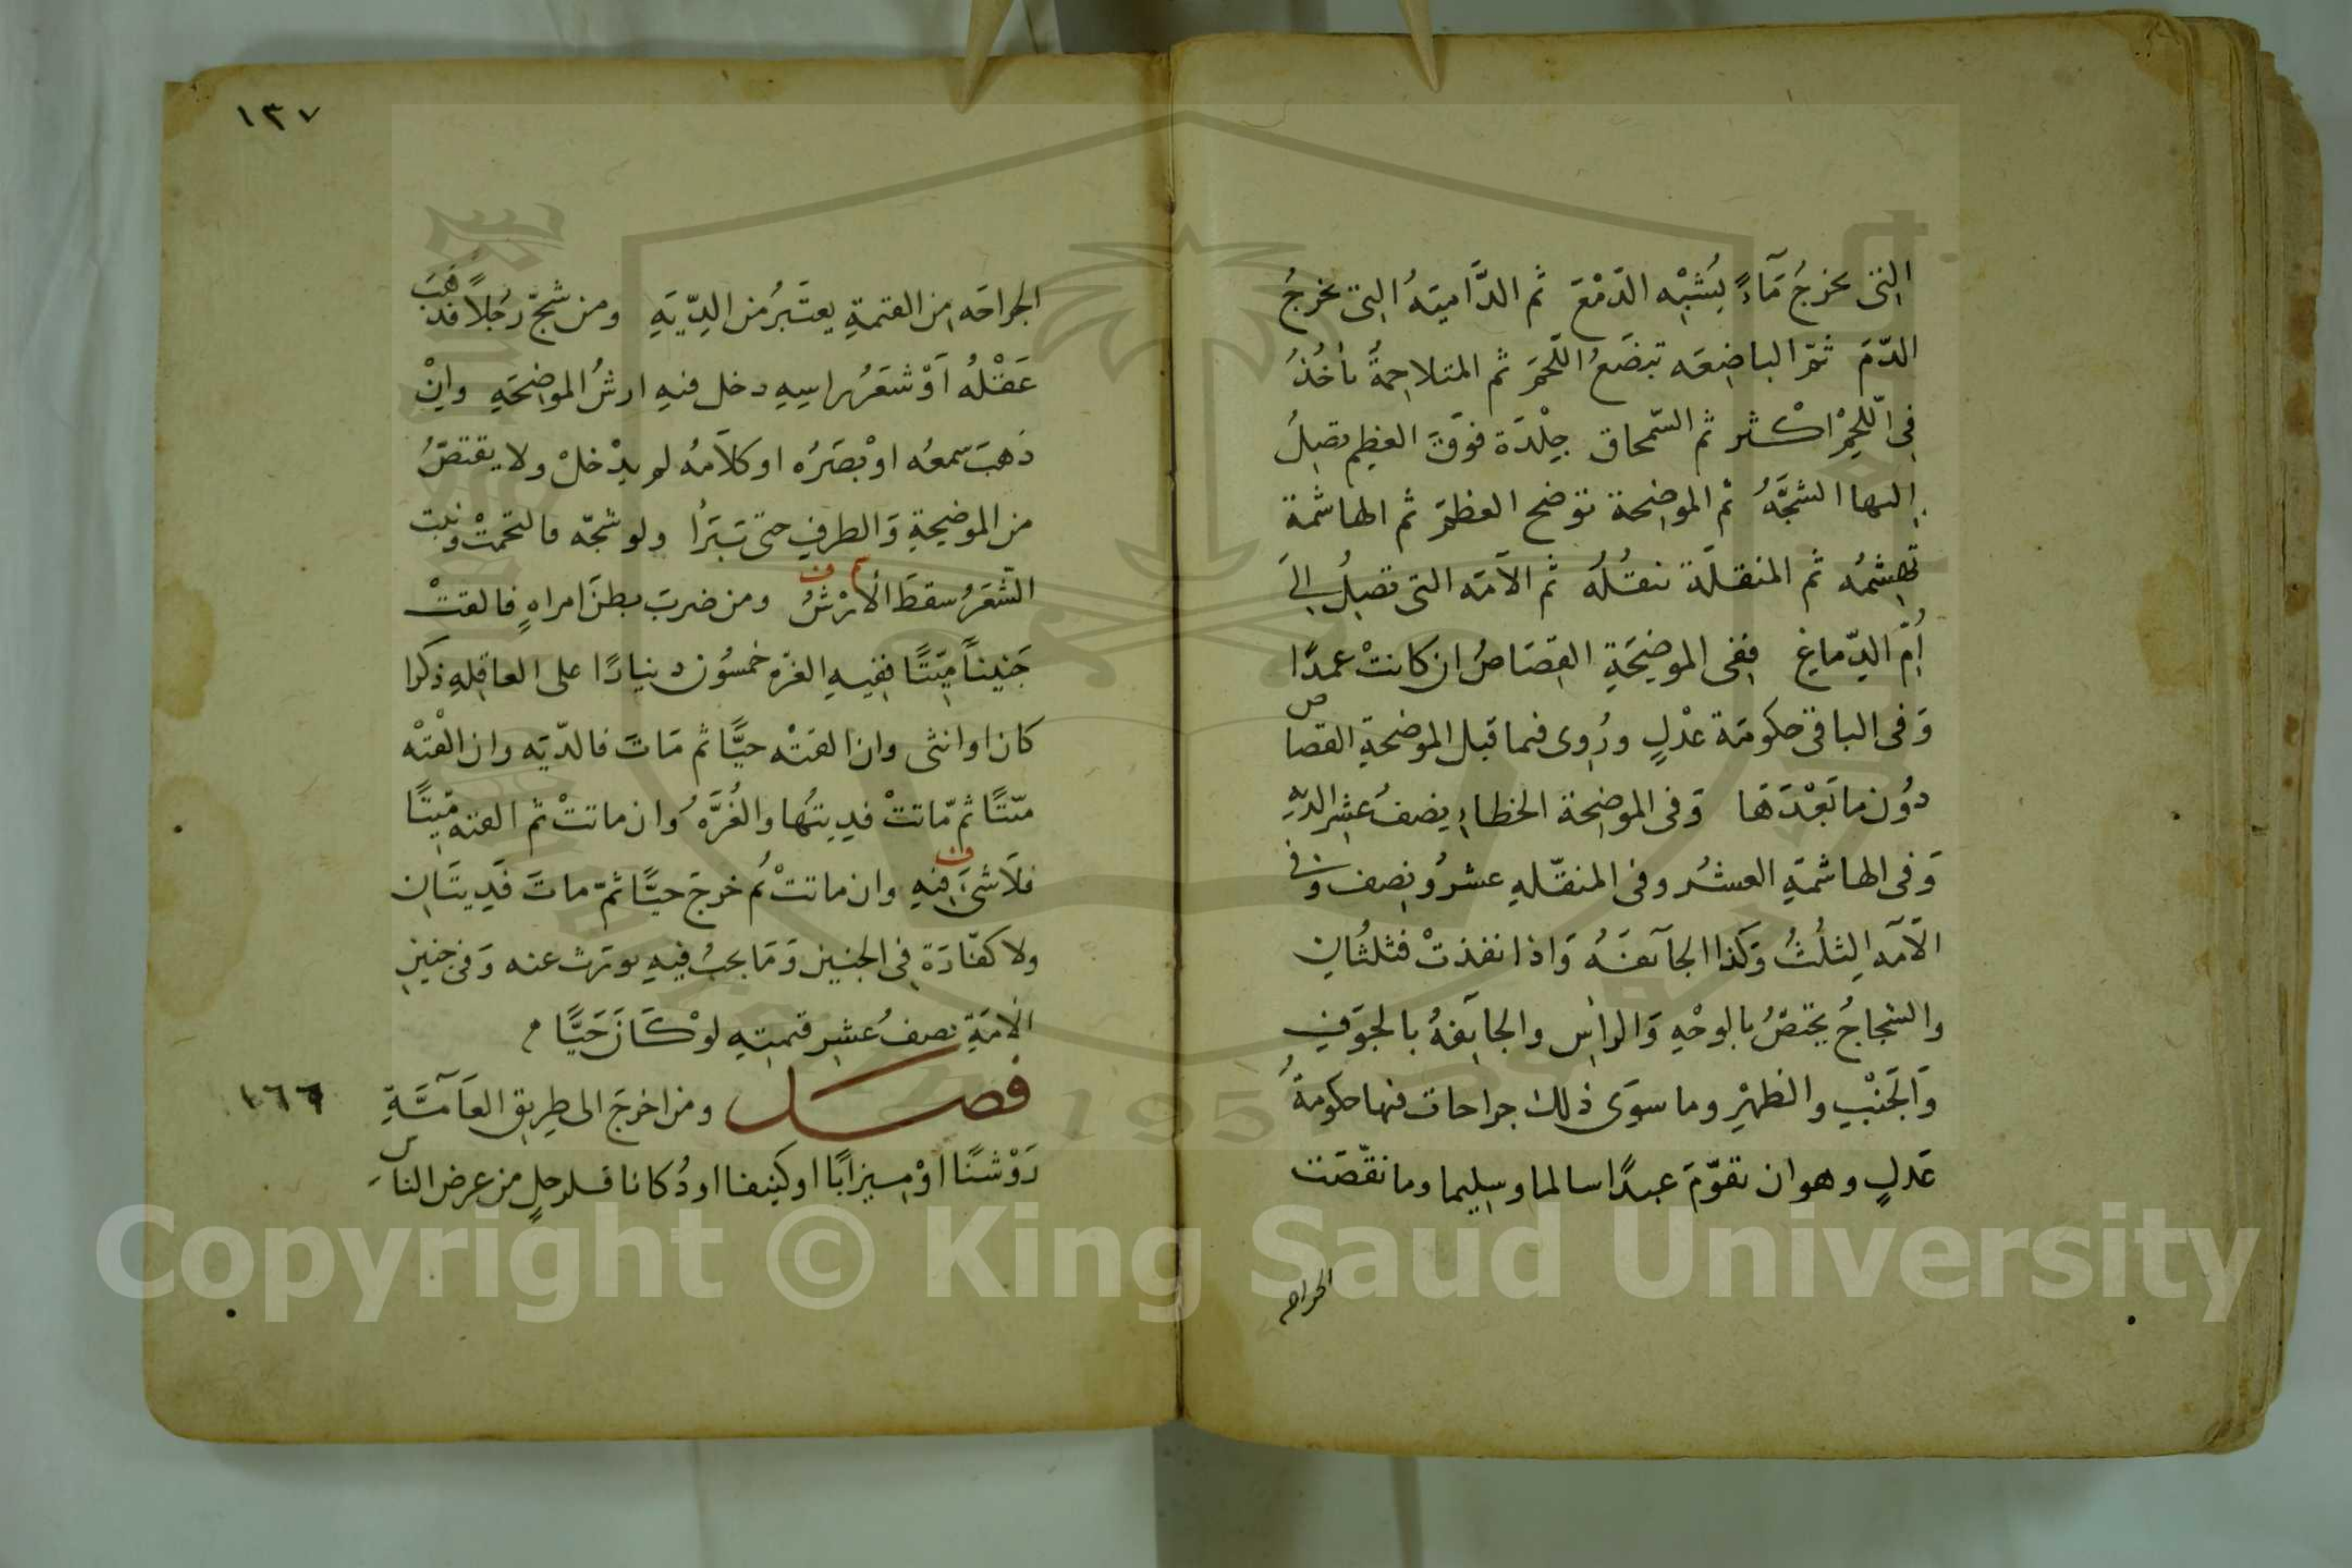 التى تخرجُ مَآءً يُشْبِه الدّمْعَ ثم الدَّاميَهُ التى تخرجُ
الدّمَ ثمّ الباضِعَه تبضَعُ اللّحمَ ثم المتلاحِمةُ تأخُذُ
فِى اللّحمِ اكْثر ثم السّمحاق جِلْدَة فوقَ العظِم تصِلُ
اليها الشجَّةُ ثم الموضِحة توضح العظمَ ثم الهاشمة
تهشِمُه ثم المنقلَة تنقُلُه ثم الآمّه التى تصِلُ الىَ
اُمّ الدّماغِ ففى الموضِحَةِ القصَاصُ ان كانتْ عمدًا
وَفى الباقى حكومَة عدْلٍ ورُوِى فيما قبل الموضحةِ القصاص
دوُن ما بَعْدَهَا وَفى الموضِحة الخطاءِ نِصفُ عشِر الديّه
وَفى الهاشمَةِ العشُر وفى المنقّلهِ عشرُ ونصِف وفى
الآمَّه الثلُثُ وَكذا الجآئفَهُ وَاذا نفذتْ فثلثُانِ
والشجاجُ يختصُّ بالوجْهِ وَالراسِ والجايَفهُ بالجوَفِ
وَالجَنْبِ والظهْرِ وما سوَى ذلك جراحات فيها حكومةُ
عَدلٍ وهو ان تقوّمَ عبدًا سالما وسليما وما نقّصَت
الجراحه
١٣٧
الجراحَه مِن القيمةِ يعتَبرُ من الدِّيَةِ ومن شجّ رَجُلاً فذهَبَ
عَقْلُه اَوْ شعَرُ راسِهِ دخل فيهِ ارشُ الموضِحَهِ وانْ
ذَهبَ سمعُه اوْ بصَرُه او كلاَمُه لم يدْخلْ ولا يقتصُّ
من الموضِحةِ وَالطرفِ حتى تَبَرأ ولو شجّه فالتحمتْ ونبت
الشَّعَرُ سقطَ الأرْشُ ومن ضربَ بطنَ امراهٍ فالقتْ
جَنيناً مَيّتًا ففِيهِ الغرّه خمسُون دينارًا على العاقِلهِ ذكرا
كان او انثى وان القتْه حيًّا ثم مَاتَ فالدّيَه وان القْتْه
ميّتًا ثمّ ماتتْ فدِيتُها والغُرَّهُ وان ماتتْ ثم القته ميّتًا
فلاَ شَىَ فيهِ وان ماتتْ ثُم خرجَ حيًّا ثمّ ماتَ فَدِيتَانِ
ولا كفّارَة فِى الجنين وَمَا يجبُ فيهِ يورَث عنه وَفى جنينِ
الامَةِ نصفُ عشِر قيمتِهِ لوْ كَانَ حَيًّا
فصل ومن اخرجَ الى طِريقِ العَآمَّةِ
١٦٦
رَوْشنًا اوْ ميزابًا او كنيفا او دُكانا فلرجلٍ من عرضِ الناس
Copyright © King Saud University
1957